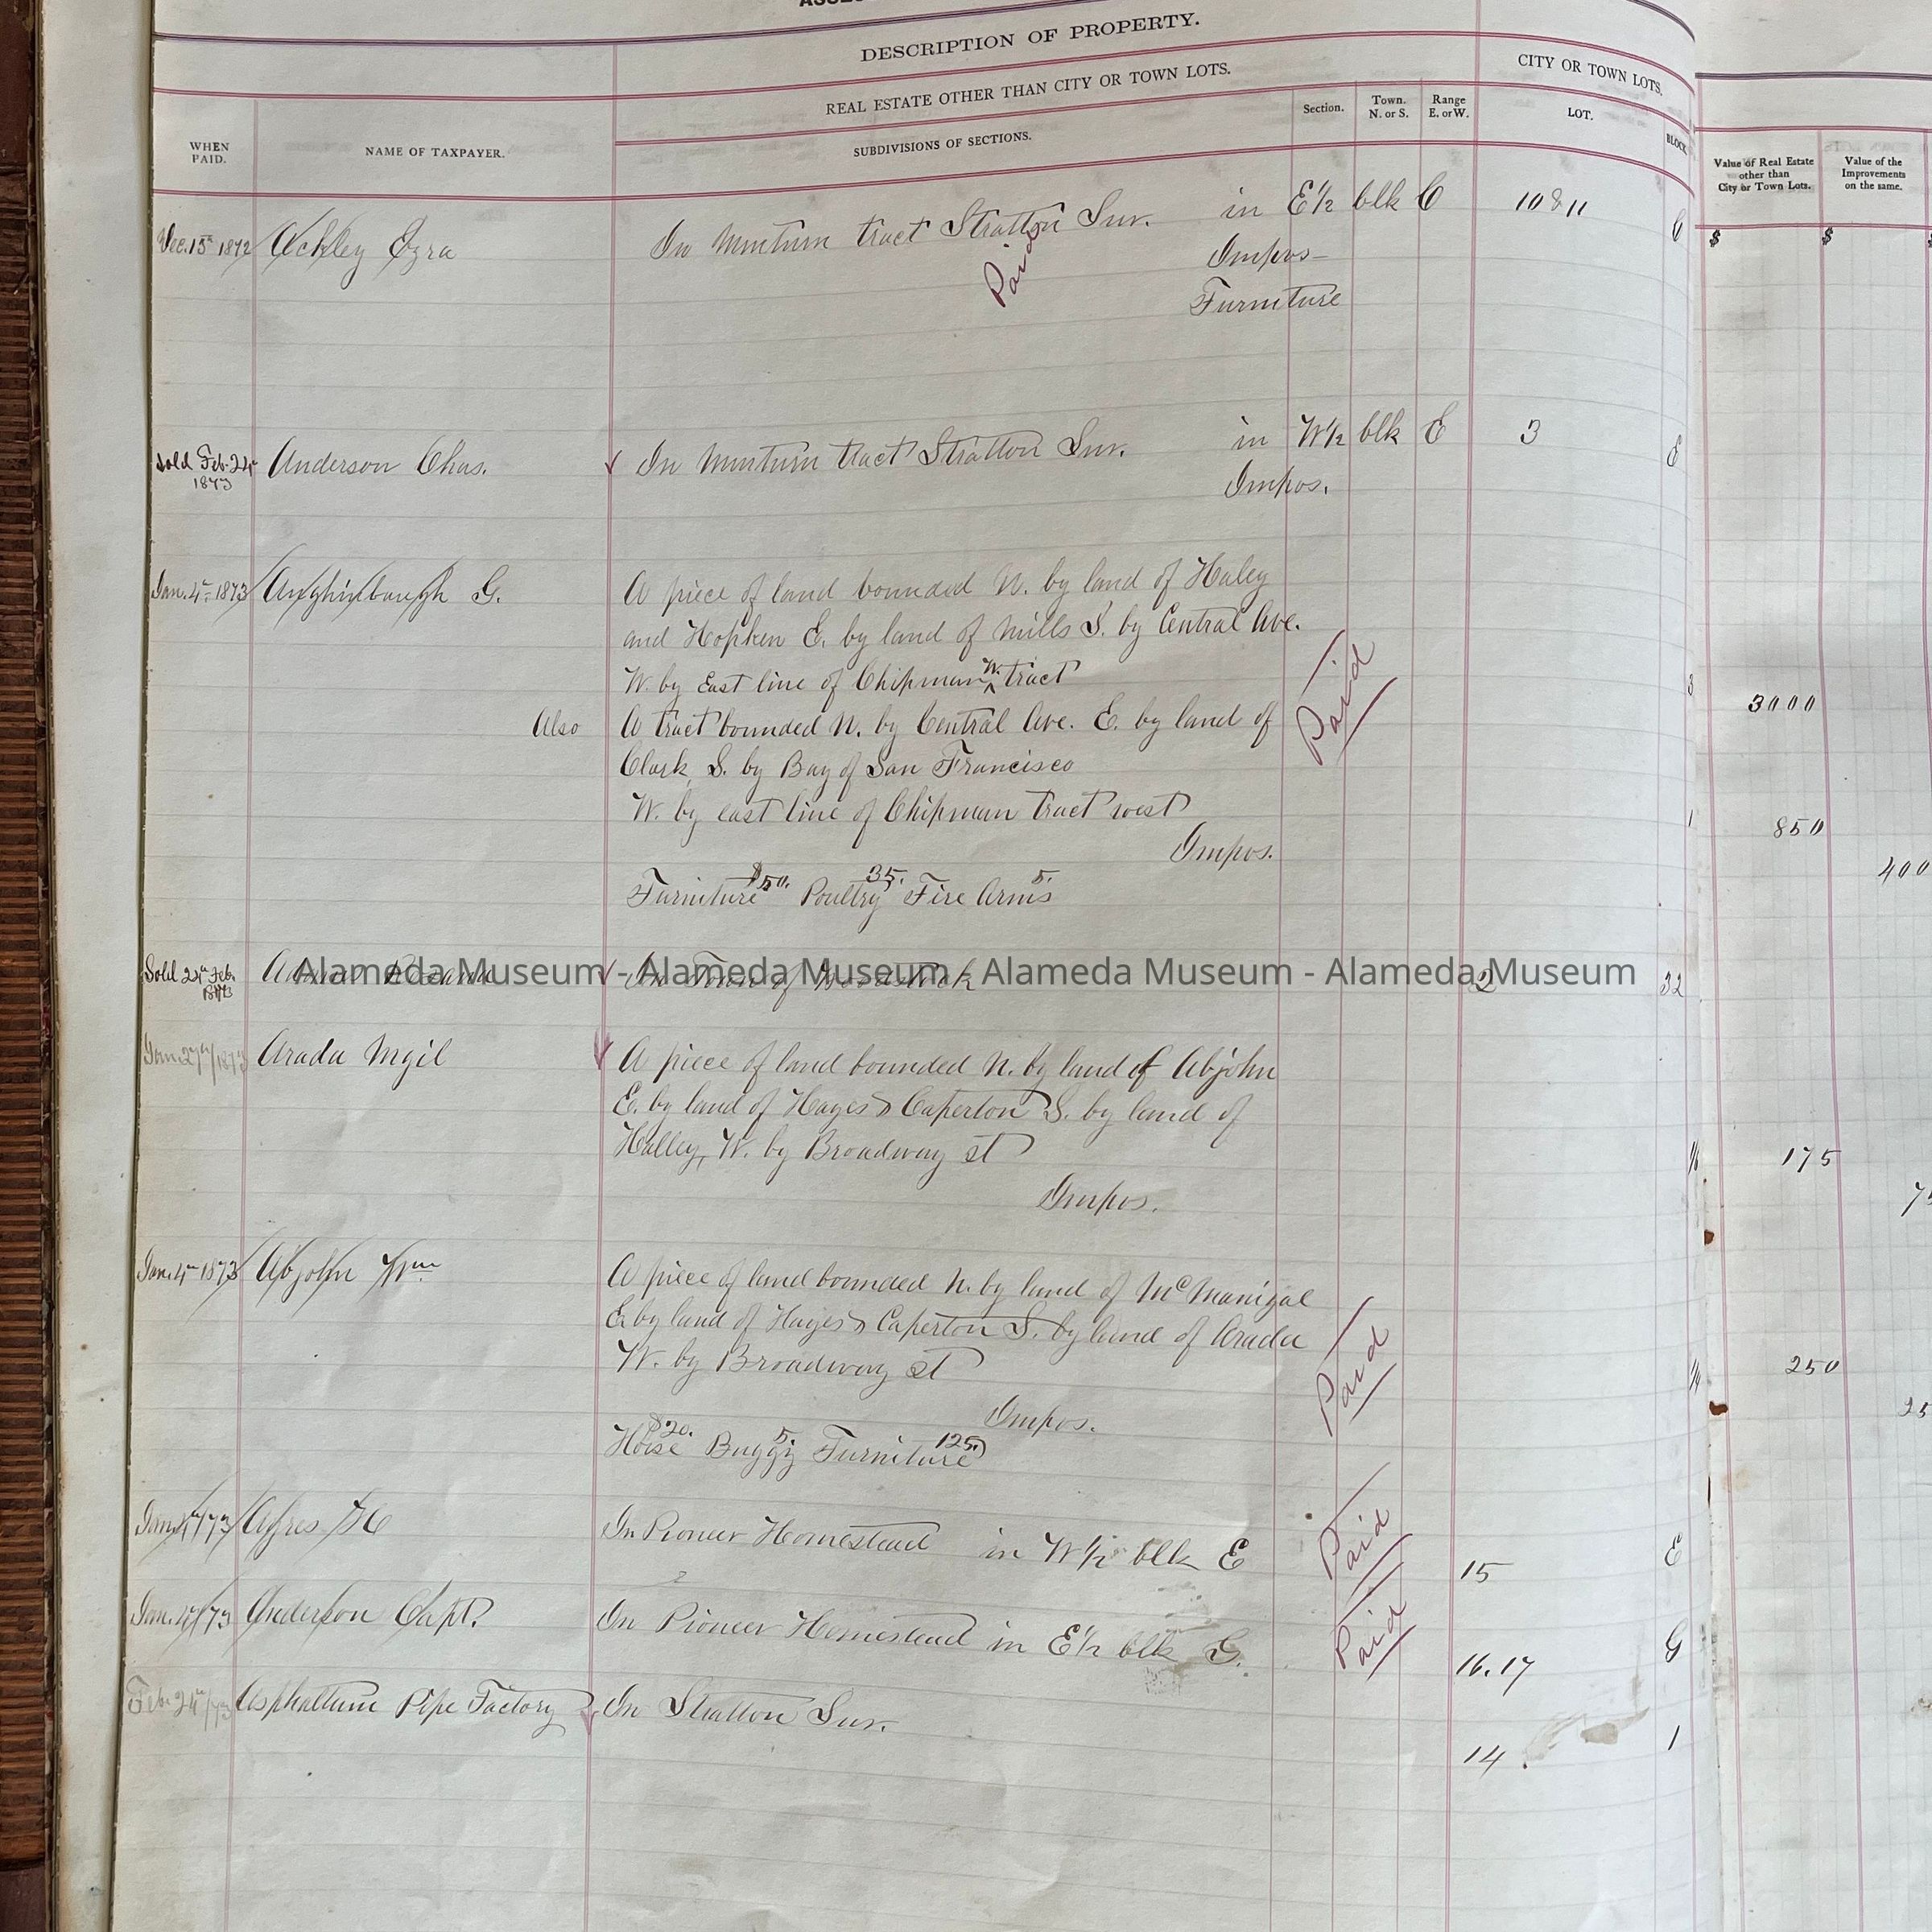 DESCRIPTION OF PROPERTY.
REAL ESTATE OTHER THAN CITY OR TOWN LOTS.
CITY OR TOWN LOTS.
WHEN PAID.
NAME OF TAXPAYER.
SUBDIVISIONS OF SECTIONS.
Section.
Town. N. or S.
Range E. or W.
LOT.
BLOCK
Value of Real Estate other than City or Town Lots.
Value of the Improvements on the same.
$ $
Dec. 15th 1872 Ackley Ezra In Minturn tract Stratton Sur. in E 1/2 blk C 10 & 11 C
Paid
Impos-
Furniture
Sold Feb. 24th 1873 Anderson Chas. In Minturn tract Stratton Sur. in W 1/2 blk E 3 E
Impos.
Jan. 4th 1873 Anghinbaugh G. A piece of land bounded N. by land of Haley
and Hopken E. by land of Mills S. by Central Ave.
W. by East line of Chipman W. tract 3000
Paid
Also A tract bounded N. by Central Ave. E. by land of
Clark, S. by Bay of San Francisco
W. by east line of Chipman tract west 850
Impos. 400
Furniture $50. Poultry 35. Fire Arms 5.
Sold 24th Feb. 1873 In Town of Woodstock 2 32
Alameda Museum - Alameda Museum - Alameda Museum - Alameda Museum
Jan. 27th/1873 Arada Mgil A piece of land bounded N. by land of Abjohn
E. by land of Hayes & Caperton S. by land of
Halley, W. by Broadway st 175
Impos.
Jan. 4th 1873 Abjohn Wm. A piece of land bounded N. by land of McManigal
E. by land of Hayes & Caperton S. by land of Arada
W. by Broadway st 250
Paid
Impos.
Horse $20. Buggy 5. Furniture 125.
Jan. 4th/73 Ayres In Pioneer Homestead in W 1/2 blk E 15 E
Paid
Jan. 4/73 Anderson Capt. In Pioneer Homestead in E 1/2 blk G. 16.17 G
Paid
Feb. 24th/73 Asphaltum Pipe Factory In Stratton Sur. 14 1